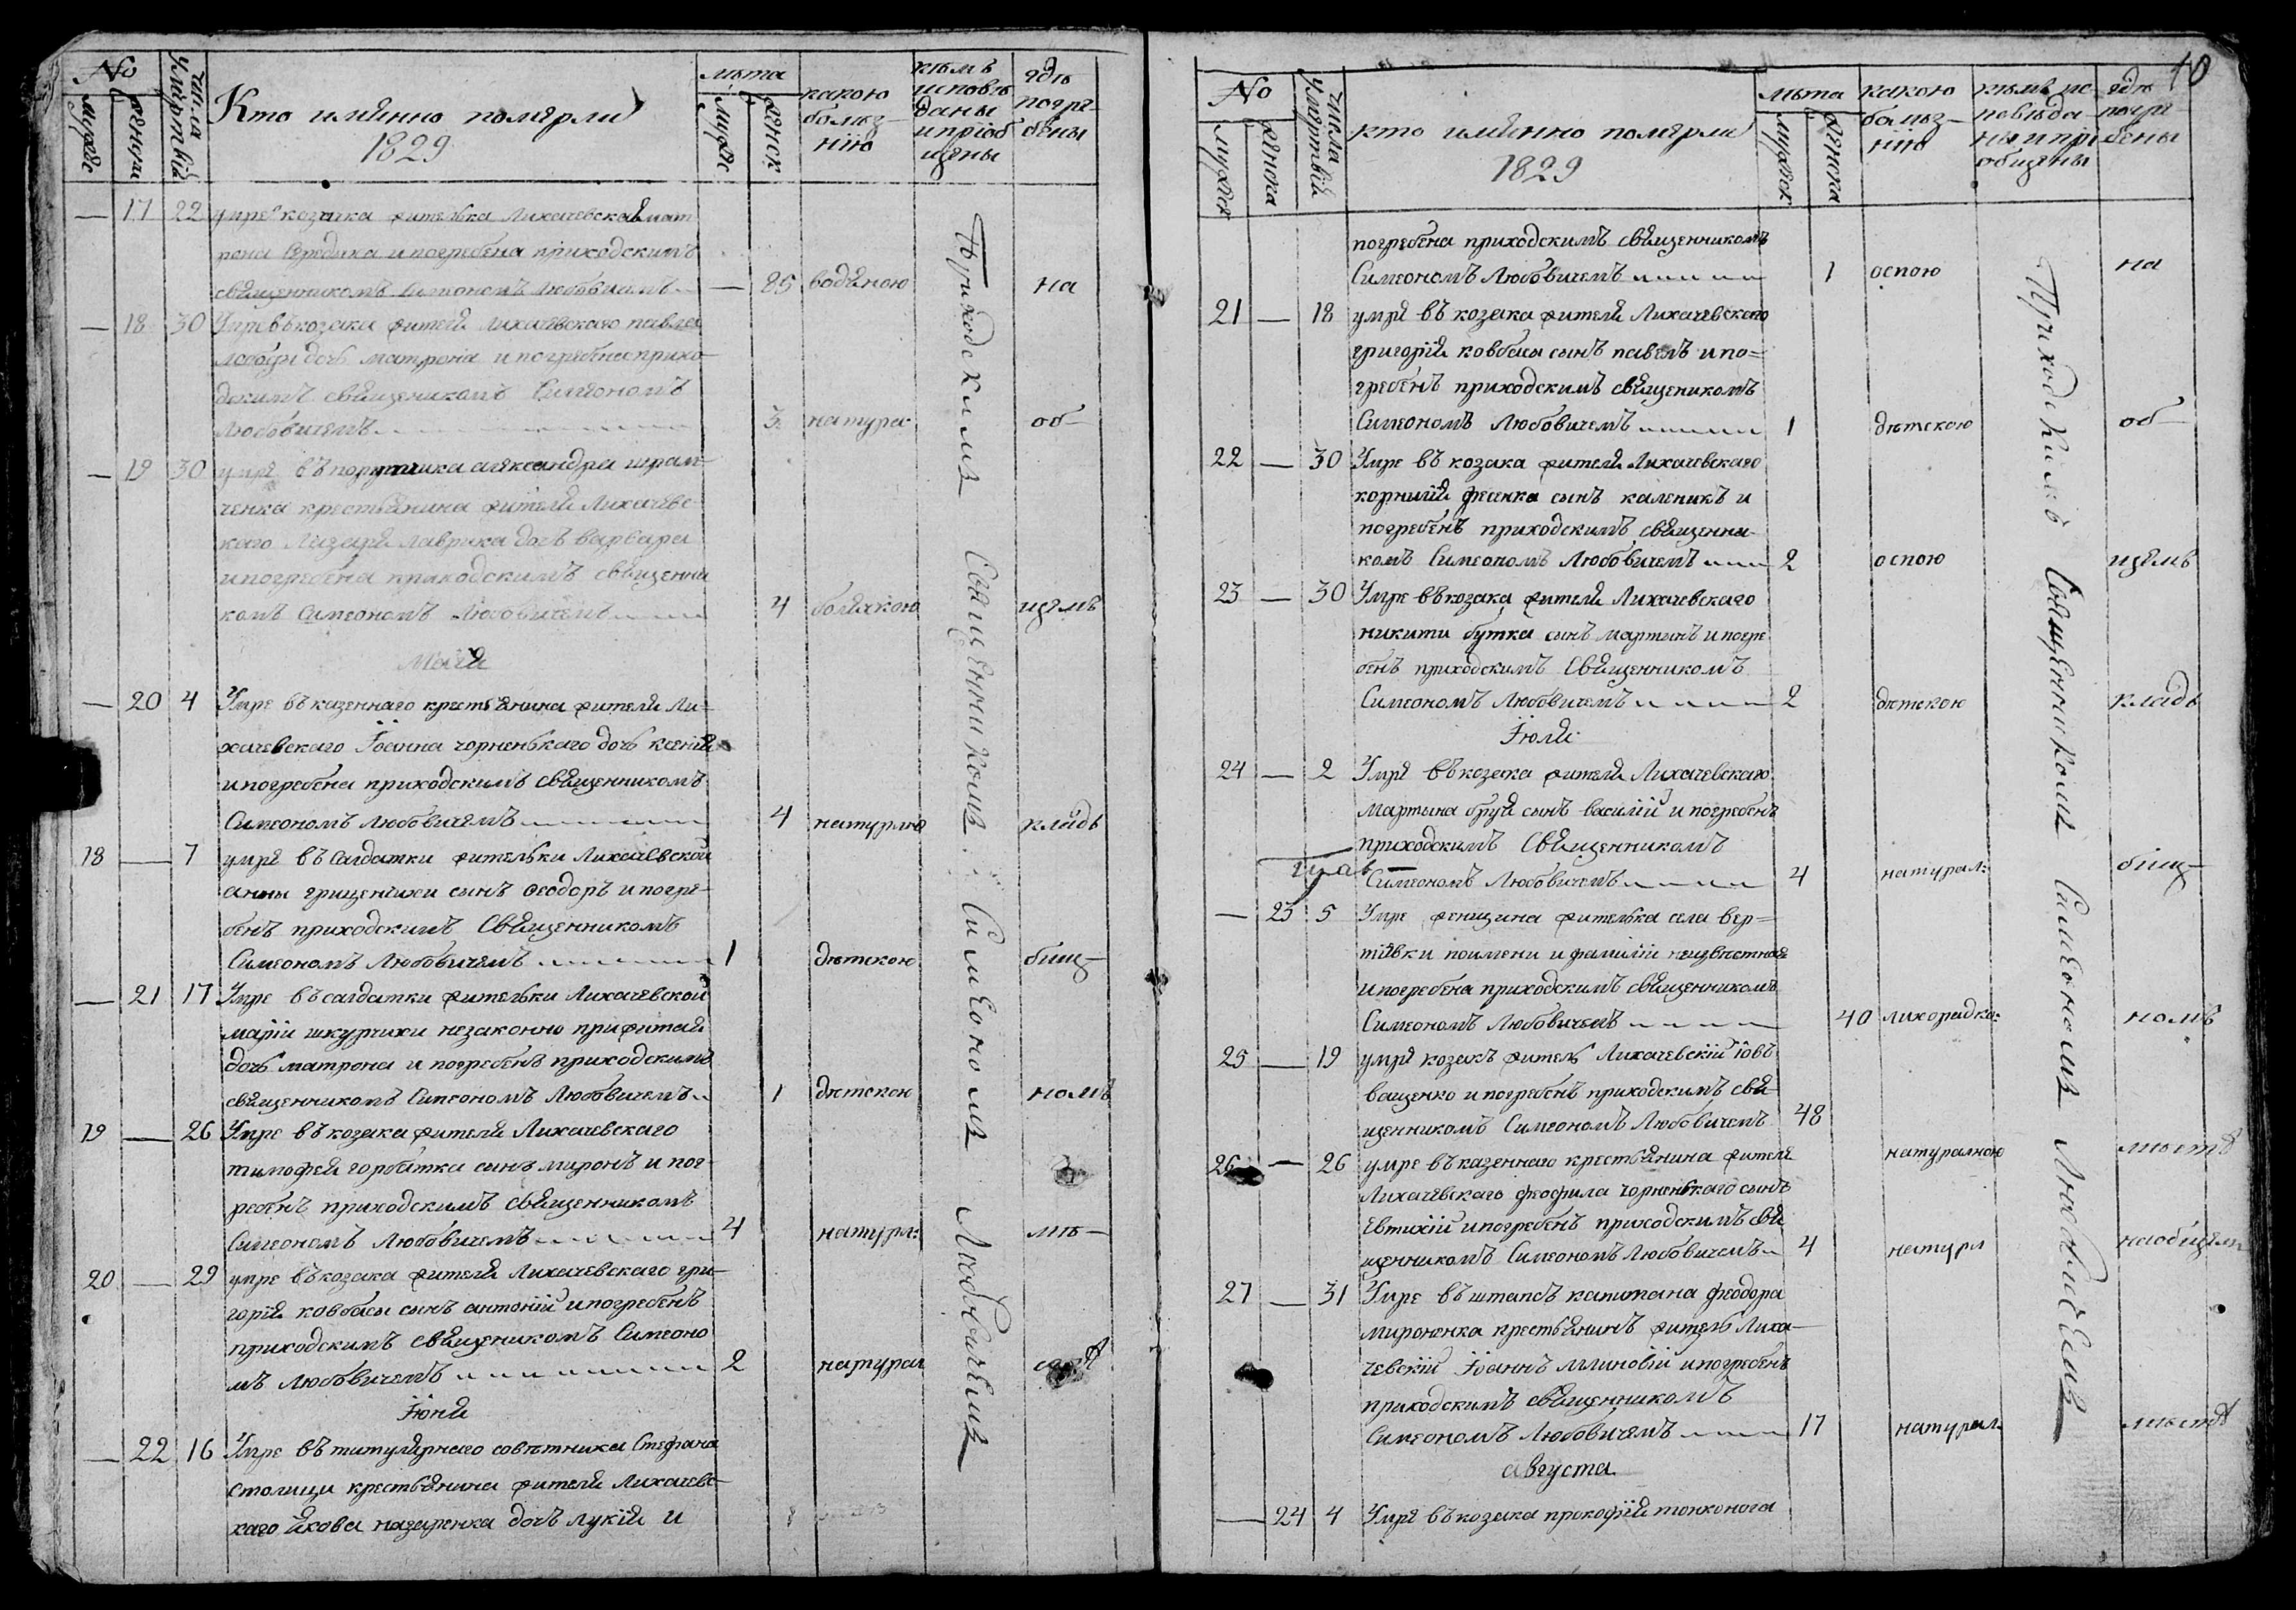 No
мужес
женска
числа умертвій
Кто имянно померли
1829
лѣта
мужес
женск
какою болѣз-нію
кѣмъ исповѣданы и пріобщены
гдѣ погребены
— 17 22 умре козачка жителька Лихачевская мат
рона Середика и погребена приходскимъ
священникомъ Симеономъ Любовичемъ — 85 водяною на
— 18 30 Умре въ козака жителя Лихачевскаго павла
лободи дочь матрона и погребена прихо-
дскимъ священикомъ Симеономъ
Любовичемъ 3 натурал об-
— 19 30 умре въ порутчика александра шрам-
ченка крестьянина жителя Лихачевс-
каго Лазаря лаврика дочь варвара
и погребена приходскимъ священни
комъ Симеономъ Любовичемъ 4 болячкою щемъ
Маія
— 20 4 Умре въ казеннаго крестьянина жителя Ли-
хачевскаго Іоанна чорненькаго дочь ксенія
и погребена приходскимъ священникомъ
Симеономъ Любовичемъ 4 натурлю кладь
18 — 7 умре въ Салдатки жительки Лихачевской
анны гриценчихи сынъ Феодоръ и погре-
бенъ приходскимъ Священникомъ
Симеономъ Любовичемъ 1 дѣтскою бищ-
— 21 17 Умре въ салдатки жительки Лихачевской
маріи шкурчихи незаконно прижитая
дочь матрона и погребенъ приходскимъ
священникомъ Симеономъ Любовичемъ 1 дѣтскою номъ
19 — 26 Умре въ козака жителя Лихачевскаго
тимофея горбатка сынъ миронъ и пог-
ребенъ приходскимъ священникомъ
Симеономъ Любовичемъ 4 натурл: мѣ-
20 — 29 умре въ козака жителя Лихачевскаго гри-
горія ковбасы сынъ антоній и погребенъ
приходскимъ священикомъ Симеоно
мъ Любовичемъ 2 натурал
Іюня
— 22 16 Умре въ титулярнаго совѣтника Стефана
столици крестьянина жителя Лихачевс-
каго Якова назаренка дочь лукія и
Приходскимъ Священникомъ Симеономъ Любовичемъ
10
No
мужеск
женска
числа умертвій
кто имянно померли
1829
лѣта
мужеск
женска
какою болѣз-нію
кѣмъ исповѣда-ны и пріобщены
гдѣ погребены
погребена приходскимъ священникомъ
Симеономъ Любовичемъ 1 оспою на
21 — 18 умре въ козака жителя Лихачевскаго
григорія ковбасы сынъ павелъ и по=
гребенъ приходскимъ священикомъ
Симеономъ Любовичемъ 1 дѣтскою об-
22 — 30 Умре въ козака жителя Лихачевскаго
корнилія фесенка сынъ каленикъ и
погребенъ приходскимъ священни-
комъ Симеономъ Любовичемъ 2 оспою щемъ
23 — 30 Умре въ козака жителя Лихачевскаго
никити бутка сынъ мартинъ и погре
бенъ приходскимъ Священникомъ
Симеономъ Любовичемъ 2 дѣтскою кладь
Іюля
24 — 2 Умре въ козака жителя Лихачевскаго
мартына бруя сынъ василій и погребенъ
приходскимъ Священникомъ
Симеономъ Любовичемъ 4 натурал: бищ-
— 23 5 Умре женщина жителька села вер=
тіевки поимени и фамиліи неизвѣстная
и погребена приходскимъ священникомъ
Симеономъ Любовичемъ 40 лихорадко: номъ
25 — 19 умре козакъ житель Лихачевскій іовъ
ващенко и погребенъ приходскимъ свя-
щенникомъ Симеономъ Любовичемъ 48 натуралною мѣстѣ
26 — 26 умре въ казеннаго крестьянина жителя
Лихачевскаго феофила чорненкаго сынъ
Евтихій и погребенъ приходскимъ свя
щенникомъ Симеономъ Любовичемъ 4 натурл наобщемъ
27 — 31 Умре въ штапсъ капитана феодора
мироненка крестьянинъ житель Лиха-
чевскій Іоаннъ и погребенъ
приходскимъ священникомъ
Симеономъ Любовичемъ 17 натурал. мѣстѣ
августа
— 24 4 Умре въ козака прокофія тонконога
Приходскимъ Священникомъ Симеономъ Любовичемъ